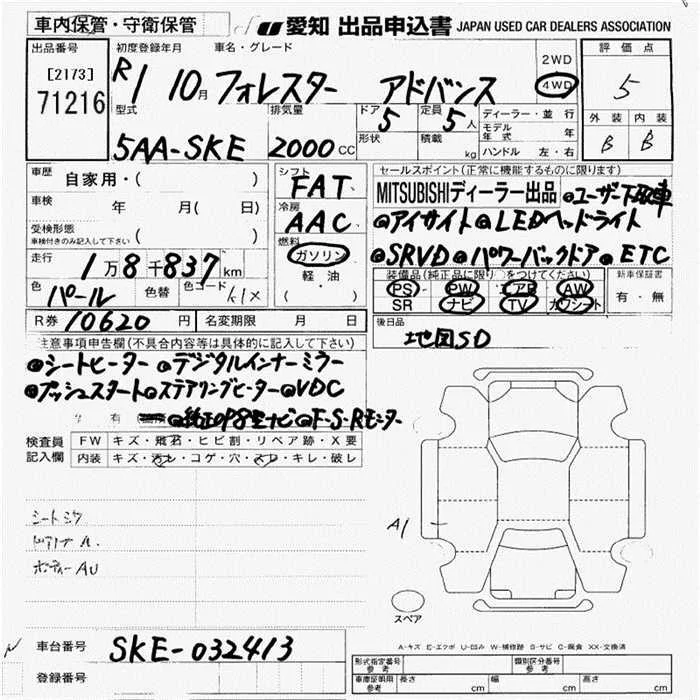 車内保管・守衛保管
愛知 出品申込書 JAPAN USED CAR DEALERS ASSOCIATION
出品番号 初度登録年月 車名・グレード 2WD 評価点
[2173] R1 10月 フォレスター アドバンス 4WD 5
71216
型式 排気量 ドア 5 定員 5人 ディーラー・並行 外装 内装
5AA-SKE 2000CC 形状 積載 kg モデル年式 年 B B
ハンドル 左・右
車歴 自家用・( ) シフト FAT セールスポイント(正常に機能するものに限ります)
MITSUBISHIディーラー出品 ◎ユーザー下取車
車検 年 月( 日) 冷房 AAC ◎アイサイト ◎LEDヘッドライト
受検形態 ( )
車検付きのみ記入して下さい
燃料 ガソリン 軽・油 ( ) ◎SRVD ◎パワーバックドア ◎ETC
走行 1万8千837km 装備品(純正品に限り○をつけてください) 新車保証書
PS PW エアB AW 有・無
色 パール 色替 色コード K1X SR ナビ TV カワシート
R券 10620円 名変期限 月 日 後日品 地図SD
注意事項申告欄(不具合内容等は具体的に記入して下さい)
◎シートヒーター ◎デジタルインナーミラー
◎プッシュスタート ◎ステアリングヒーター ◎VDC
有 ◎純正OP8型ナビ ◎F・S・Rモニター
検査員記入欄 FW キズ・飛石・ヒビ割・リペア跡・X要
内装 キズ・汚レ・コゲ・穴・スレ・キレ・破レ
シート
ボディー AU
A1
スペア
A-キズ E-エクボ U-凹み W-補修跡 S-サビ C-腐食 XX-交換済
車台番号 SKE-032413
登録番号
形式指定番号 参考 類別区分番号 参考
車庫証明用 参考 長さ cm 幅 cm 高さ cm